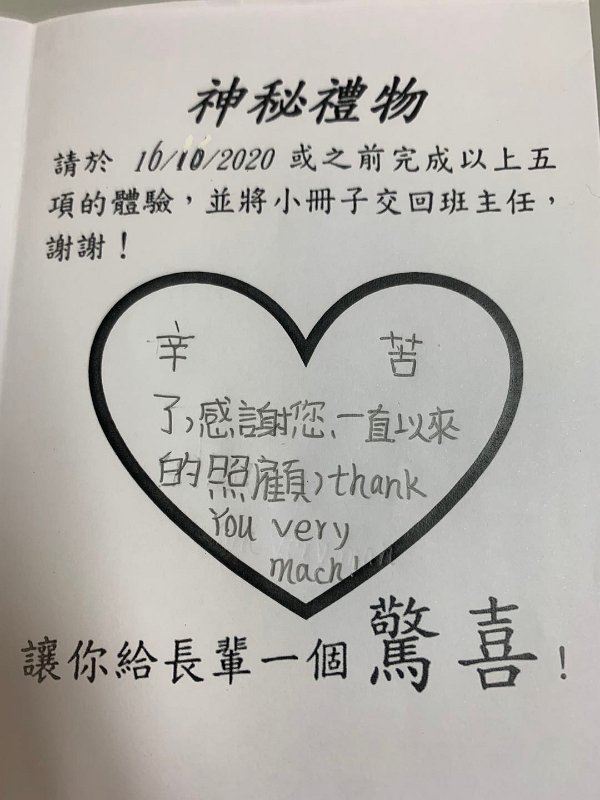 神秘禮物
請於 16/10/2020 或之前完成以上五
項的體驗，並將小冊子交回班主任，
謝謝！
辛 苦
了，感謝您、一直以來
的照顧，thank
You very
mach!
讓你給長輩一個驚喜！